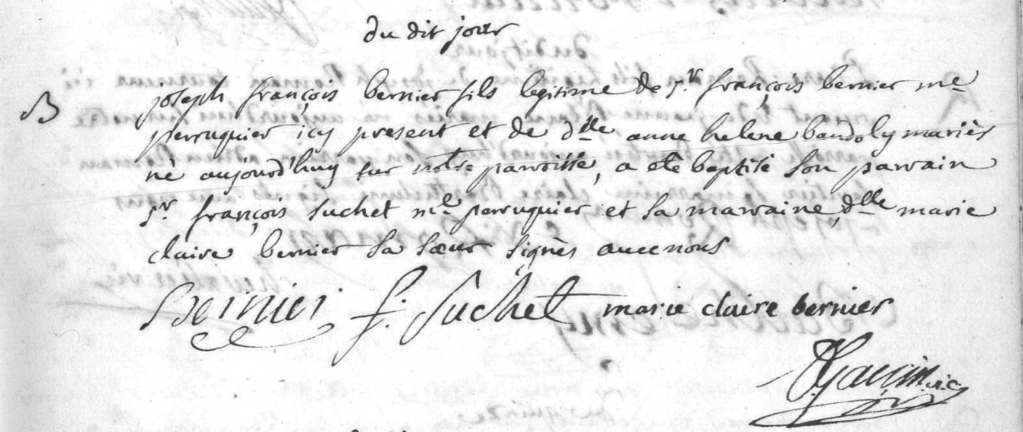 du dit jour
B
joseph françois bernier fils legitime de sr. françois bernier me.
perruquier icy present et de dlle anne helene bandoly mariés
né aujourd'huy sur notre paroisse, a eté baptisé son parrain
sr. françois suchet me. perruquier et sa marraine dlle marie
claire bernier sa sœur signés avec nous
Bernier f. Suchet marie claire bernier